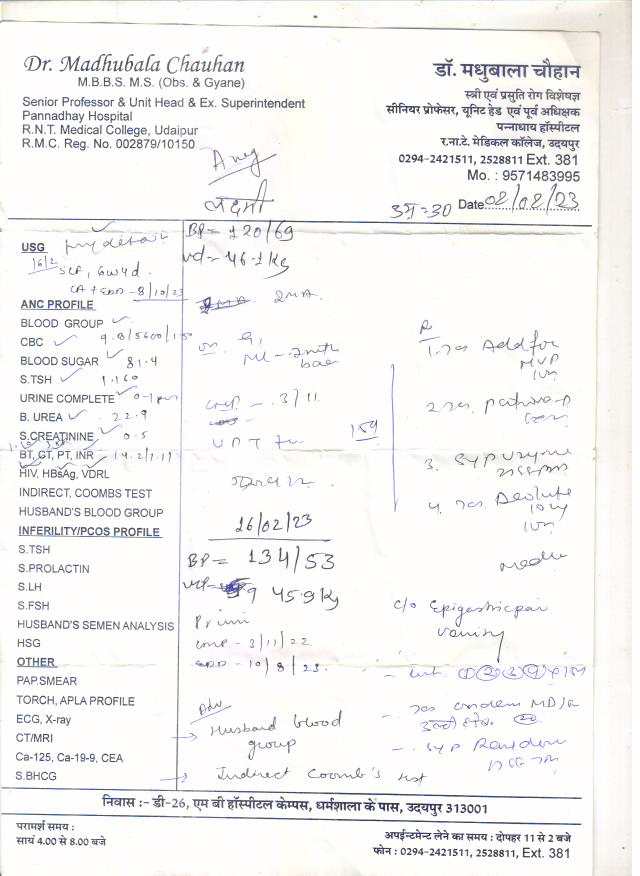 Dr. Madhubala Chauhan
M.B.B.S. M.S. (Obs. & Gyane)
Senior Professor & Unit Head & Ex. Superintendent
Pannadhay Hospital
R.N.T. Medical College, Udaipur
R.M.C. Reg. No. 002879/10150
डॉ. मधुबाला चौहान
स्त्री एवं प्रसुति रोग विशेषज्ञ
सीनियर प्रोफेसर, यूनिट हेड एवं पूर्व अधिक्षक
पन्नाधाय हॉस्पीटल
र.ना.टे. मेडिकल कॉलेज, उदयपुर
0294-2421511, 2528811 Ext. 381
Mo. : 9571483995
लक्ष्मी
उम्र = 30 Date 02/02/23
USG
16/2
SLF, 6w4d
EDD - 8/10/23
ANC PROFILE
BLOOD GROUP
CBC 9.8/5600/
BLOOD SUGAR 81.4
S.TSH 1.160
URINE COMPLETE
B. UREA 22.9
S.CREATININE 0.5
BT, CT, PT, INR 14.2/1.11
HIV, HBsAg, VDRL
INDIRECT, COOMBS TEST
HUSBAND'S BLOOD GROUP
INFERILITY/PCOS PROFILE
S.TSH
S.PROLACTIN
S.LH
S.FSH
HUSBAND'S SEMEN ANALYSIS
HSG
OTHER
PAP.SMEAR
TORCH, APLA PROFILE
ECG, X-ray
CT/MRI
Ca-125, Ca-19-9, CEA
S.BHCG
BP = 120/69
wt = 46.1 kg
2 MA
LMP - 3/11
UPT
26/02/23
BP = 134/53
45.9 Kg
Primi
LMP - 3/11/22
EDD - 10/8/23
Adv
→ Husband blood
group
→ Indirect Coomb's test
R
1. Tab
MVP
2. Tab
3. Syp
4. Tab
c/o Epigestric pain
Vomiting
- Tab ondem MD
- Syp
निवास :- डी-26, एम बी हॉस्पीटल केम्पस, धर्मशाला के पास, उदयपुर 313001
परामर्श समय :
सायं 4.00 से 8.00 बजे
अपईन्टमेन्ट लेने का समय : दोपहर 11 से 2 बजे
फोन : 0294-2421511, 2528811, Ext. 381